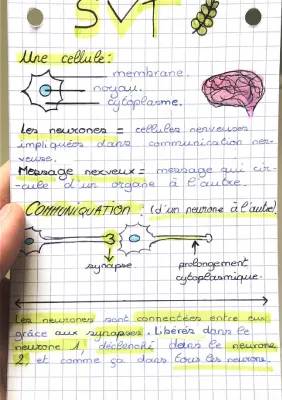 SVT
Une cellule:
membrane.
noyau.
cytoplasme.
Les neurones = cellules nerveuses
impliquées dans communication ner-
veuse.
Message nerveux = message qui cir-
cule d'un organe à l'autre.
COMMUNIQUATION : (d'un neurone à l'autre).
3
synapse.
prolongement
cytoplasmique.
Les neurones sont connectées entre eux
grâce aux synapses. Libérés dans le
neurone 1, déclenché dans le neurone
2, et comme ça dans tous les neurone.